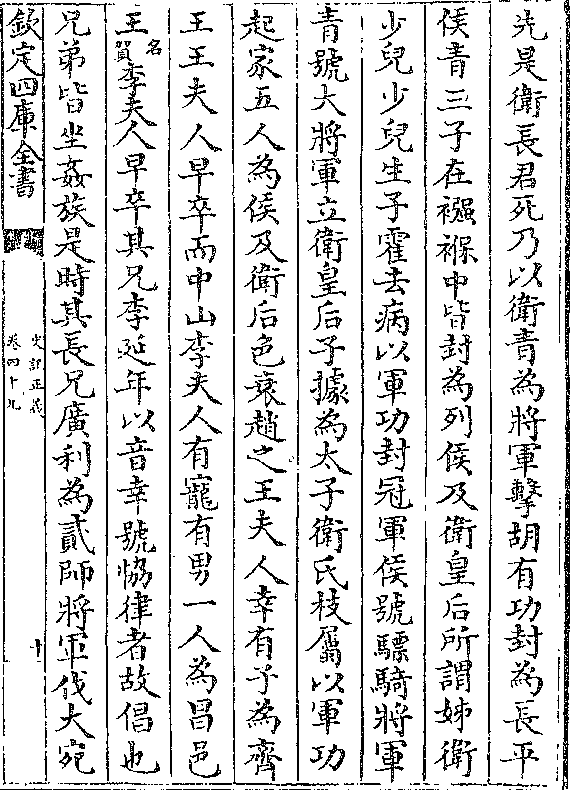 先是衛長君死乃以衛青為將軍擊胡有功封為長平
侯青三子在襁褓中皆封為列侯及衛皇后所謂姊衛
少兒少兒生子霍去病以軍功封冠軍侯號驃騎將軍
青號大將軍立衛皇后子據為太子衛氏枝屬以軍功
起家五人為侯及衛后色衰趙之王夫人幸有子為齊
王王夫人早卒而中山李夫人有寵有男一人為昌邑
王名賀李夫人早卒其兄李延年以音幸號恊律者故倡也
兄弟皆坐姦族是時其長兄廣利為貳師將軍伐大宛
欽定四庫全書
史記正義
卷四十九
十